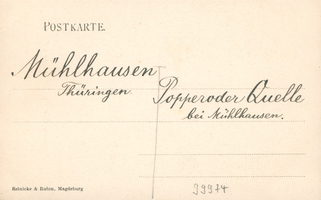 POSTKARTE.
Mühlhausen
Thüringen.
Popperoder Quelle
bei Mühlhausen.
Reinicke & Rubin, Magdeburg
39974